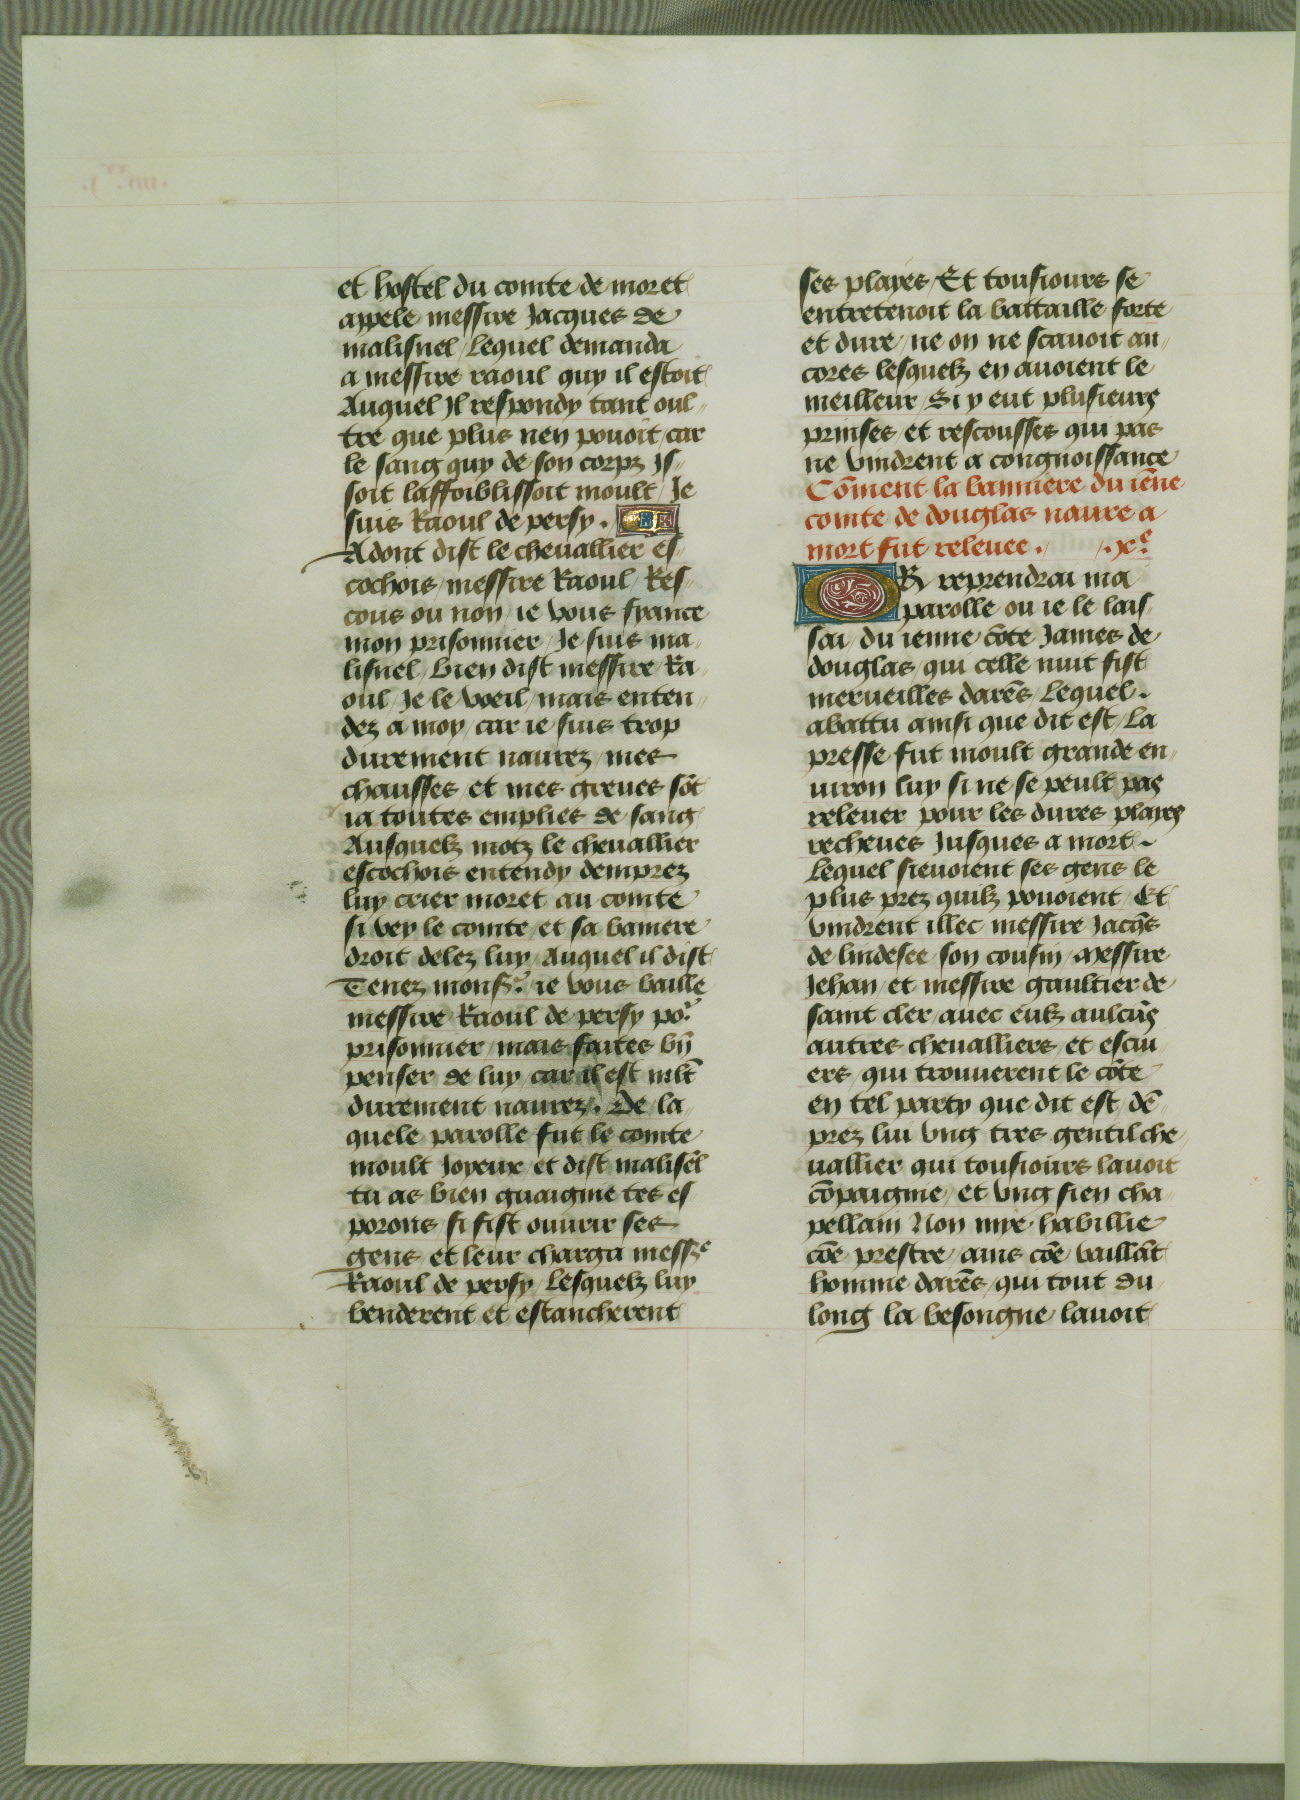 et hostel du comte de moret
appele messire Jacques de
malisnel / Lequel demanda
a messire raoul quy il estoit
Auquel Jl respondy tant oul-
tre que plus nen pouoit / car
le sang quy de son corpz Js-
soit laffoiblissoit moult / Je
suis Raoul de persy .
Adont dist le cheuallier es-
cochois / messire Raoul / Res-
cous ou non / ie vous fyance
mon prisonnier / Je suis ma-
lisnel / Bien dist messire Ra-
oul / Je le voeil / mais enten-
dez a moy / car ie suis trop
durement naurez / mes
chausses et mes greues sōt
ia toutes emplies de sang
Ausquelz motz le cheuallier
escochois entendy demprez
luy crier moret au comte
si vey le comte / et sa baniere
droit delez luy / Auquel il dist
Tenez monsr. ie vous baille
messire Raoul de persy por
prisonnier / mais faites bn̄
penser de luy / car il est mlt̄
durement naurez . De la-
quele parolle fut le comte
moult Joyeux / et dist malisēl
tu as bien guaignie tes es-
porons / si fist ouurir ses
gens / et leur charga messre
Raoul de persy / Lesquelz luy
benderent et estancherent
ses playes / Et tousiours se
entretenoit la battaille forte
et dure / ne on ne scauoit an-
cores lesquelz en auoient le
meilleur / Si y eut plusieurs
prinses et rescousses qui pas
ne vindrent a congnoissance
Cōment la banniere du iēne
comte de douglas naure a
mort fut releuee . / . xe.
OR reprendrai ma
parolle ou ie le lais-
sai / du ienne cōte James de
douglas / qui celle nuit fist
merueilles darēs / Lequel
abattu ainsi que dit est / La
presse fut moult grande en-
uiron luy / si ne se peult pas
releuer pour les dures playes
recheues Jusques a mort
Lequel sieuoient ses gens le
plus prez quilz pouoient / Et
vindrent illec messire Jacq̄s
de lindesee son cousin / Messire
Jehan et messire gaultier de
saint cler / auec eulz aulcūs
autres cheualliers et escui-
ers / qui trouuerent le cōte
en tel party que dit est / dē-
prez lui vng tres gentil che-
uallier qui tousiours lauoit
cōpaignie / et vng sien cha-
pellain Non mye habillie
cōe prestre / ains cōe vaillāt
homme darēs / qui tout du
long la besongne lauoit